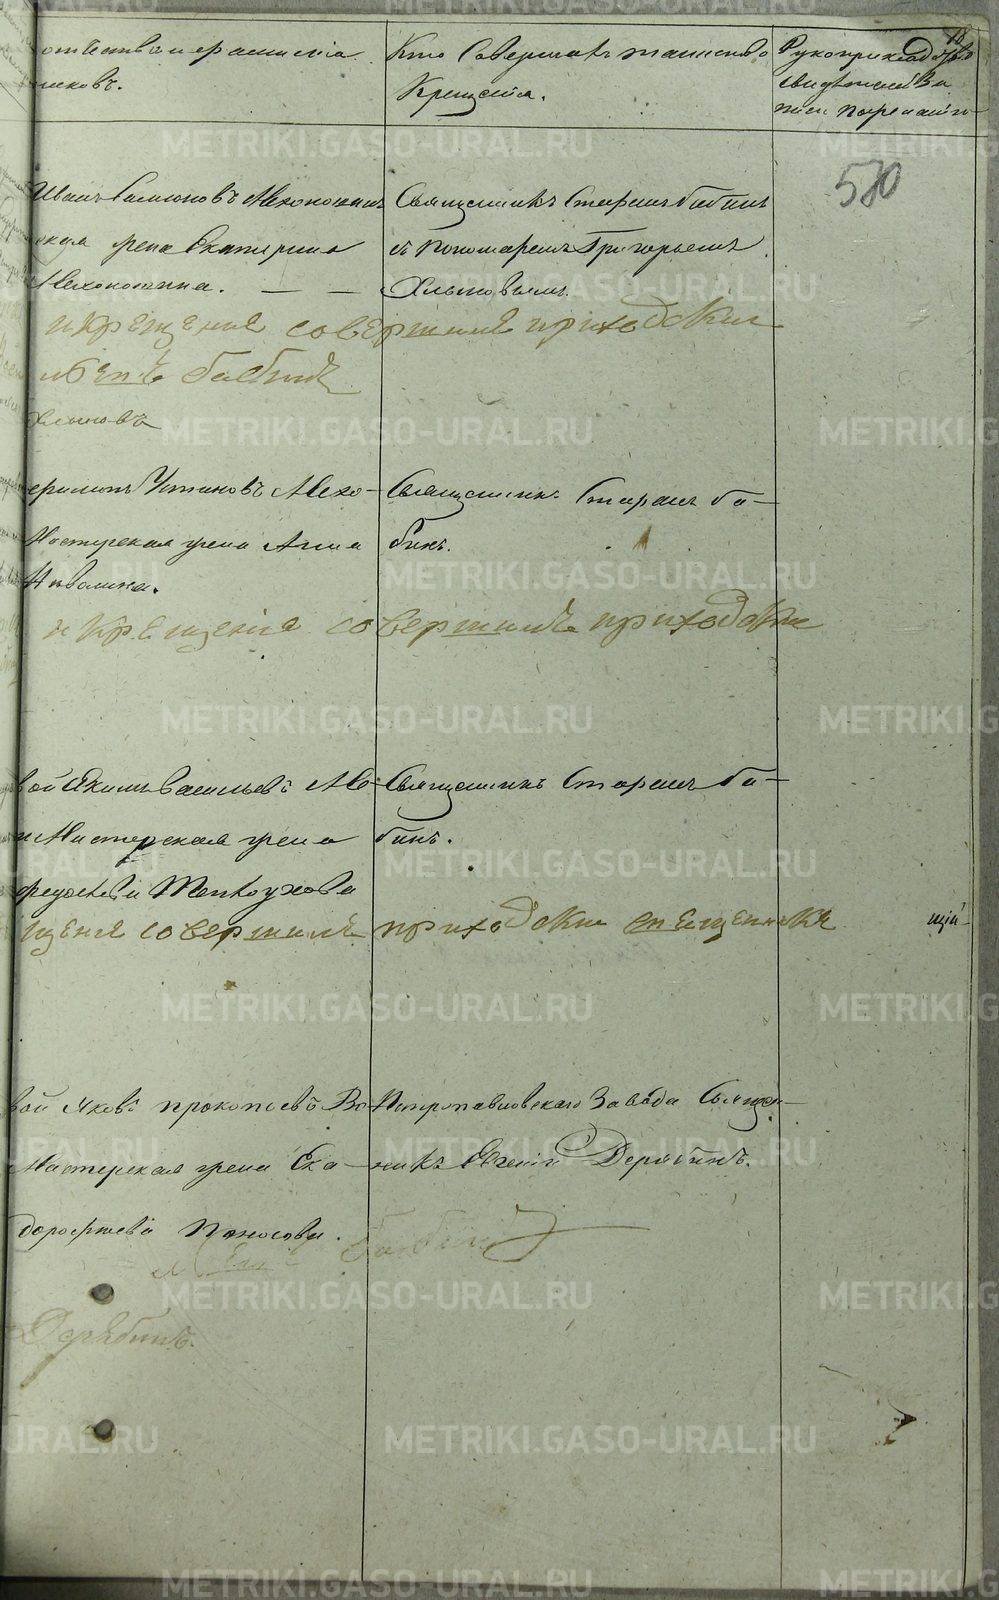 отчество и фамилія
никовъ.
Кто совершалъ таинство
Крещенія.
Рукоприкладство
свидѣтелей за
писи по желанію
18
580
Иванъ Симоновъ Мехоношинъ
ская жена Екатерина
Мехоношина.
Священникъ Стефанъ Бабинъ
съ пономаремъ Григорьемъ
Хлыновымъ.
и крещенія совершилъ приходски
Бабинъ
Хлыновъ
Устиновъ Мехо-
Мастерская жена Анна
Священникъ Стефанъ Ба-
бинъ.
и крещенія совершилъ приходски
вой Якимъ Васильевъ Ме-
Мастерская жена
Священникъ Стефанъ Ба-
бинъ.
щенія совершилъ приходски священникъ
щій
вой Яковъ Прокопьевъ
Мастерская жена Ека-
дорофеева Поносова.
Петропавловскаго Завода Священ-
никъ Евгеній Дерябинъ.
Бабинъ
Дерябинъ.
METRIKI.GASO-URAL.RU